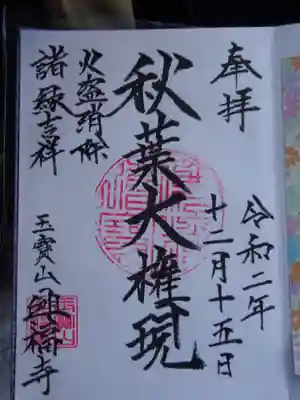 奉拝
令和二年
十二月十五日
秋葉大権現
火盗消除
諸縁吉祥
玉寳山興福寺